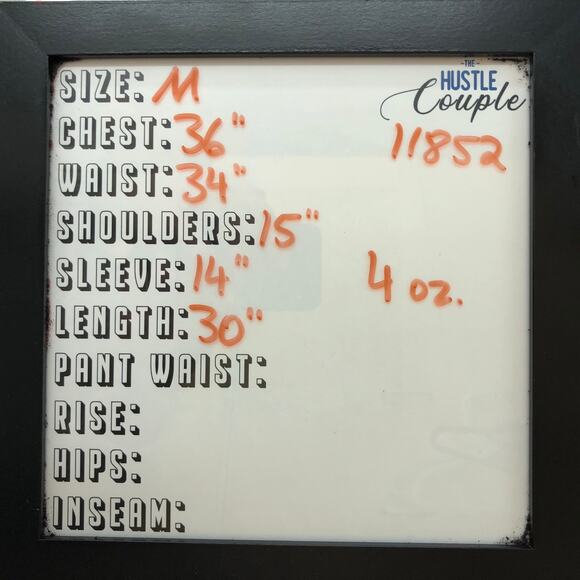 -THE-
HUSTLE
Couple
SIZE: M
CHEST: 36"
11852
WAIST: 34"
SHOULDERS: 15"
SLEEVE: 14"
4 oz.
LENGTH: 30"
PANT WAIST:
RISE:
HIPS:
INSEAM: